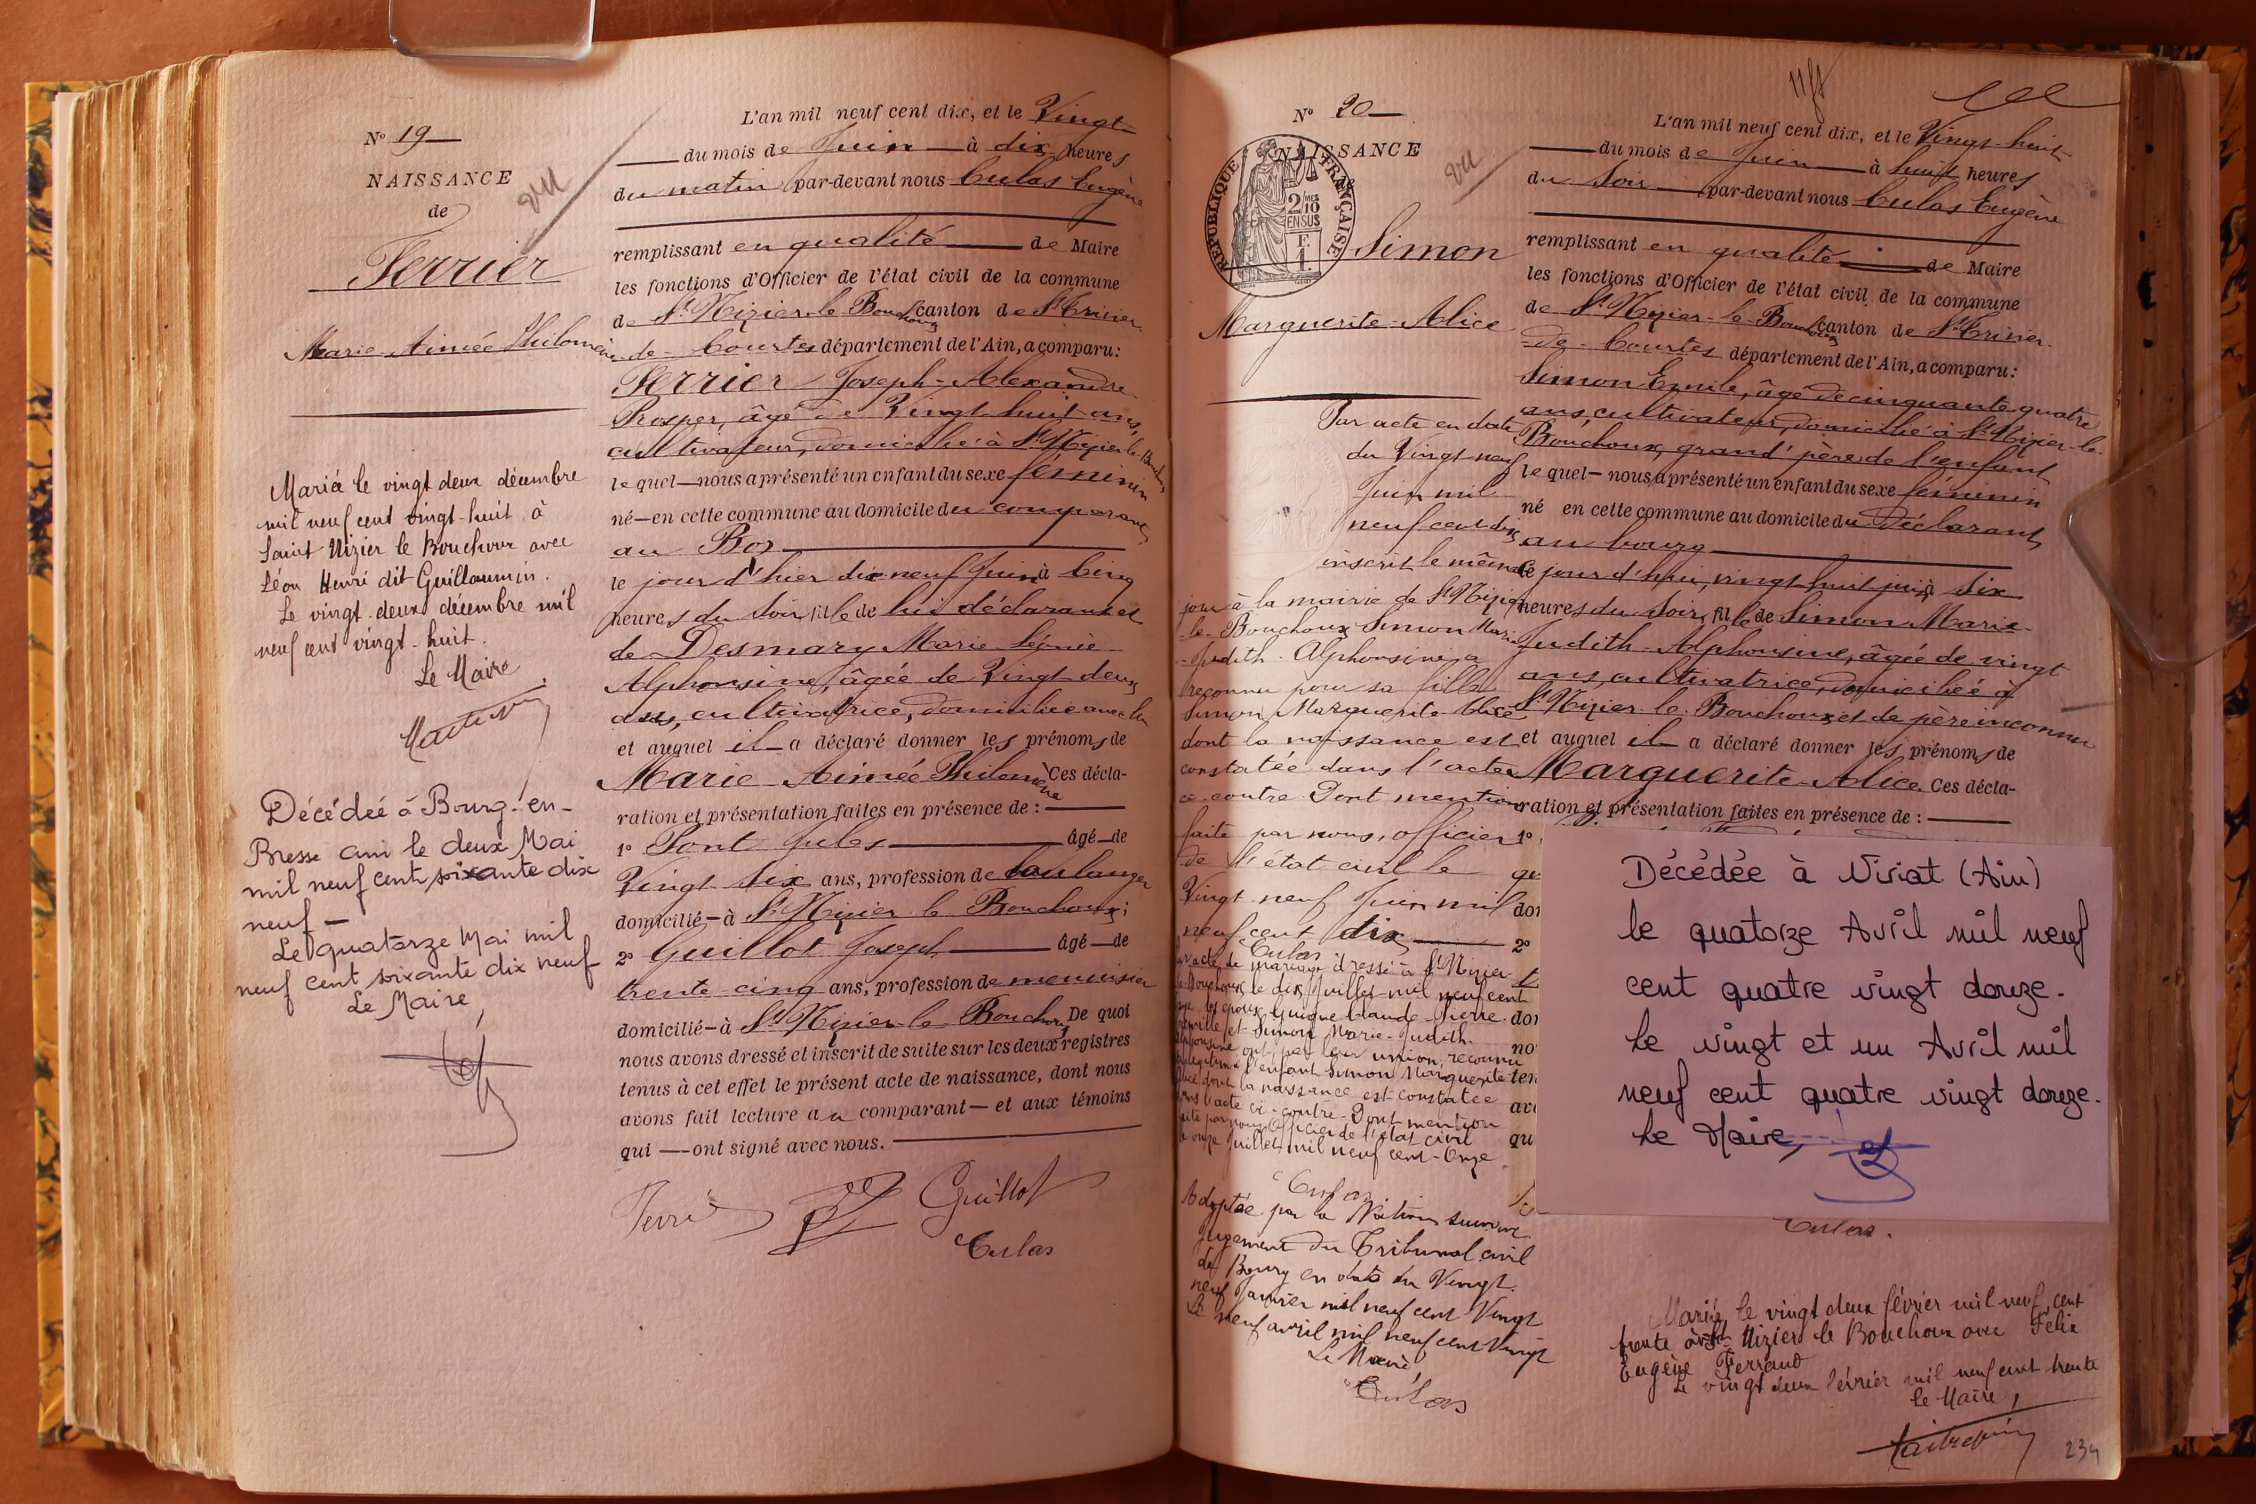 N° 19
NAISSANCE
de
vu
Ferrier
Marie Aimée Philomène
Mariée le vingt deux décembre
mil neuf cent vingt-huit à
Saint Nizier le Bouchoux avec
Léon Henri dit Guillaumin.
Le vingt-deux décembre mil
neuf cent vingt-huit.
Le Maire
Décédée à Bourg-en-
Bresse Ain le deux Mai
mil neuf cent soixante dix
neuf —
Le quatorze Mai mil
neuf cent soixante dix neuf
Le Maire,
L'an mil neuf cent dix, et le Vingt
du mois de Juin à dix heures
du matin par-devant nous Culas Eugène
remplissant en qualité de Maire
les fonctions d'Officier de l'état civil de la commune
de St Nizier-le Bouchoux canton de St Trivier
de Courtes département de l'Ain, a comparu:
Ferrier Joseph-Alexandre
Prosper, âgé de Vingt huit ans,
cultivateur, domicilié à St Nizier-le-Bouchoux
lequel — nous a présenté un enfant du sexe féminin
né — en cette commune au domicile du comparant
au Boz
le jour d'hier dix neuf Juin à Cinq
heures du Soir, fille de lui déclarant et
de Desmary Marie Léonie
Alphonsine, âgée de Vingt deux
ans, cultivatrice, domiciliée avec lui
et auquel il a déclaré donner les prénoms de
Marie Aimée Philomène Ces décla-
ration et présentation faites en présence de :
1° Pont Jules âgé — de
Vingt Six ans, profession de boulanger
domicilié — à St Nizier le Bouchoux;
2° Guillot Joseph âgé — de
trente-cinq ans, profession de menuisier
domicilié — à St Nizier-le Bouchoux De quoi
nous avons dressé et inscrit de suite sur les deux registres
tenus à cet effet le présent acte de naissance, dont nous
avons fait lecture au comparant — et aux témoins
qui — ont signé avec nous.
Guillot
Culas
N° 20
NAISSANCE
vu
RÉPUBLIQUE FRANÇAISE
2/10 EN SUS
Simon
Marguerite-Alice
Par acte en date
du Vingt neuf
Juin mil
neuf cent dix
inscrit le même
jour à la mairie de St Nizier
le-Bouchoux Simon Marie
Judith-Alphonsine a
reconnu pour sa fille
Simon Marguerite Alice
dont la naissance est
constatée dans l'acte
ci-contre. Dont mention
faite par nous, officier
de l'état civil le
Vingt neuf Juin mil
neuf cent dix
Culas
acte de mariage dressé à St Nizier
le Bouchoux le dix Juillet mil neuf cent
onze les époux Guigue Claude-Pierre
et Simon Marie-Judith
Alphonsine ont, par leur union, reconnu
l'enfant Simon Marguerite
dont la naissance est constatée
dans l'acte ci-contre. Dont mention
faite par nous Officier de l'état civil
le onze Juillet mil neuf cent-Onze
Culas
Adoptée par la Nation suivant
jugement du Tribunal civil
de Bourg en date du Vingt
neuf Janvier mil neuf cent Vingt
Le neuf avril mil neuf cent Vingt
Le Maire
Culas
L'an mil neuf cent dix, et le Vingt-huit
du mois de Juin à huit heures
du Soir par-devant nous Culas Eugène
remplissant en qualité de Maire
les fonctions d'Officier de l'état civil de la commune
de St Nizier-le-Bouchoux canton de St Trivier
de-Courtes département de l'Ain, a comparu:
Simon Emile, âgé de cinquante quatre
ans, cultivateur, domicilié à St Nizier-le-
Bouchoux, grand'père de l'enfant
lequel — nous a présenté un enfant du sexe féminin
né en cette commune au domicile du Déclarant,
au bourg
ce jour d'hui, vingt huit juin à Six
heures du Soir, fille de Simon Marie-
Judith-Alphonsine, âgée de vingt
ans, cultivatrice, domiciliée à
St Nizier-le-Bouchoux et de père inconnu
et auquel il a déclaré donner les prénoms de
Marguerite-Alice. Ces décla-
ration et présentation faites en présence de :
1°
2°
Décédée à Viriat (Ain)
le quatorze Avril mil neuf
cent quatre vingt douze.
Le vingt et un Avril mil
neuf cent quatre vingt douze.
Le Maire,
Culas.
Mariée le vingt deux février mil neuf cent
trente à St Nizier le Bouchoux avec Félix
Eugène Ferrand
Le vingt deux février mil neuf cent trente
Le Maire,
234